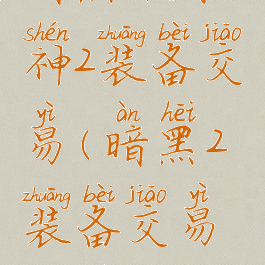 shén zhuāng bèi jiāo
神2装备交
yì àn hēi
易(暗黑2
zhuāng bèi jiāo yì
装备交易